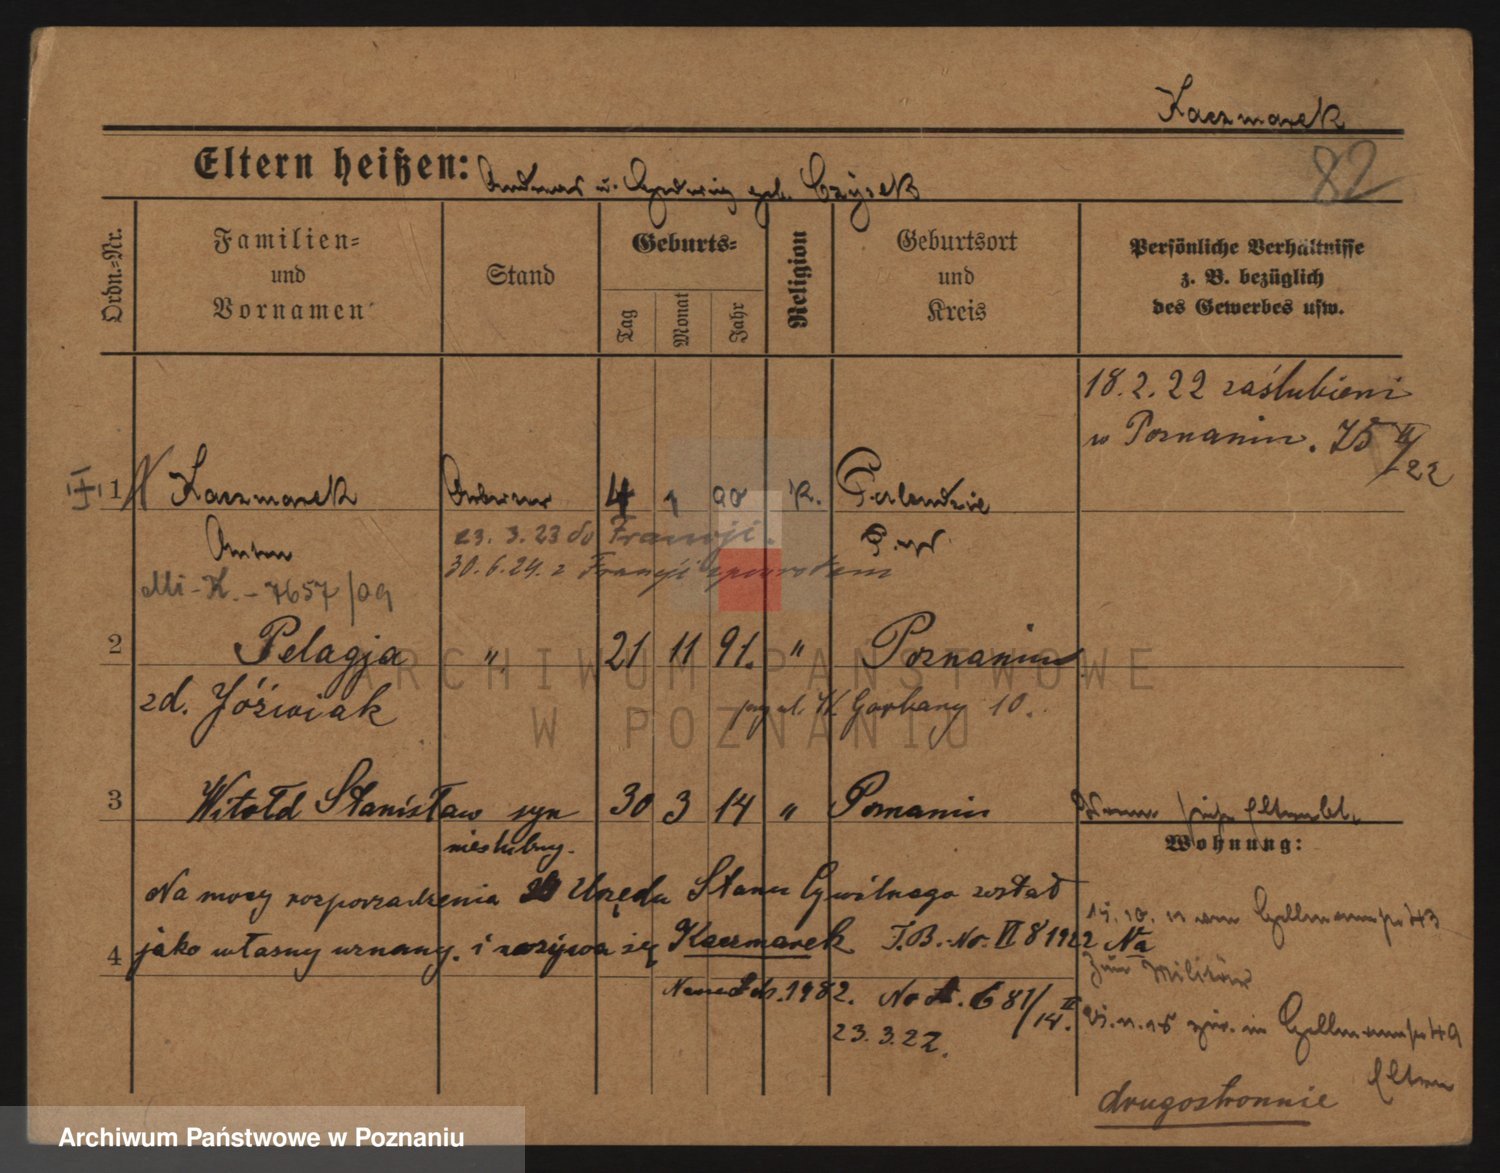 Kaczmarek
82
Eltern heißen: Andreas u. Hedwig geb. Czyzak
Ordn.-Nr.
Familien-
und
Vornamen
Stand
Geburts-
Tag
Monat
Jahr
Religion
Geburtsort
und
Kreis
Persönliche Verhältnisse
z. B. bezüglich
des Gewerbes usw.
18.2.22 zaślubieni
w Poznaniu. 75 II/22
1 Kaczmarek 4 1 90 K.
Anton
23. 3. 23 do Francji.
30.6.24. z Francji z powrotem
Mi-K.-7657/09
2 Pelagja " 21 11 91. " Poznaniu
zd. Jóźwiak
Garbary 10.
3 Witold Stanisław syn 30 3 14 " Poznaniu
nieślubny.
Wohnung:
Na mocy rozporządzenia Urzędu Stanu Cywilnego został
4 jako własny uznany. i nazywa się Kaczmarek J.B.-Nr. VI 8 1922 Na
1982. No A. 681/14 II.
23.3.22.
zum Militär
Eltern
drugostronnie
ARCHIWUM PAŃSTWOWE
W POZNANIU
Archiwum Państwowe w Poznaniu